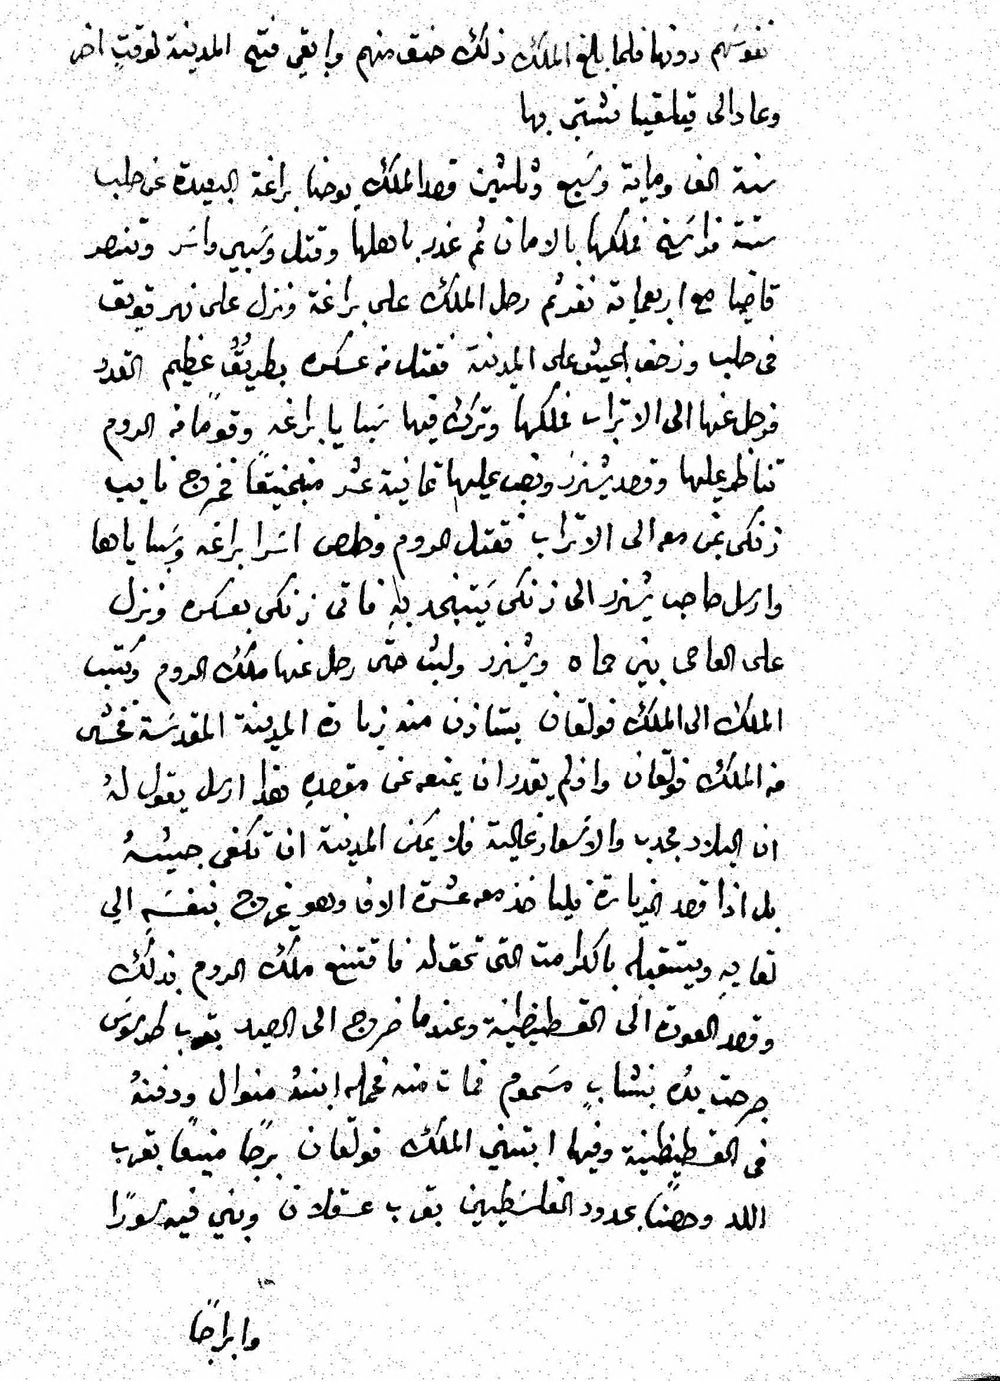 نفوسهم دونها فلما بلغ الملك ذلك حنق منهم وابقي فتح المدينة لوقتٍ اخر
وعاد الى قيلقيا فشتى بها
سنة الف ومايه وسبع وثلثين قصد الملك يوحنا بزاغة البعيدة عن حلب
ستة فراسخ فملكها بالامان ثم غدر باهلها وقتل وسبي واسر وتنصر
قاضيها مع اربعماية نفر ثم رحل الملك على بزاغة ونزل على نهر قويق
فى حلب وزحف الجيش على المدينة فقتل من عسكره بطريقٌ عظيم القدر
فرحل عنها الى الاتراب فملكها وترك فيها سبايا بزاغه وقومًا من الروم
تناظر عليها وقصد شيزر ونصب عليها ثمانية عشر منجنيقًا فخرج نايب
زنكى بمن معه الى الاتراب فقتل الروم وخلص اسرا بزاغه وسباياها
وارسل صاحب شيزر الى زنكى يستنجد به فاتى زنكى بعسكره ونزل
على العاصى بين حماه وشيزر ولبث حتى رحل عنها ملك الروم وكتب
الملك الى الملك فولقان يستاذن منه زيارة المدينة المقدسة فخشى
منه الملك فولقان واذ لم يقدر ان يمنعه عن مقصده هذا ارسل يقول لهُ
ان البلاد بجدب والاسعار غالية فلا يمكن المدينة ان تكفى جيشهُ
بل اذا قصد الزيارة فلياخذ معه عشرة الاف وهو يخرج بنفسه الي
لقايه ويستقبله بالكرامة التى تحق له فاقتنع ملك الروم بذلك
وقصد العودة الى القسطنطينة وعندما خرج الى الصيد بقرب طرسوس
جرحت يدهُ بنشابٍ مسموم فمات منه فحمله ابنهُ منوال ودفنهُ
فى القسطنطينة وفيها ابتني الملك فولقان برجًا منيعًا بقرب
اللد وحصنًا بحدود الفلسطين بقرب عسقلان وبني فيه سورًا
وابراجًا